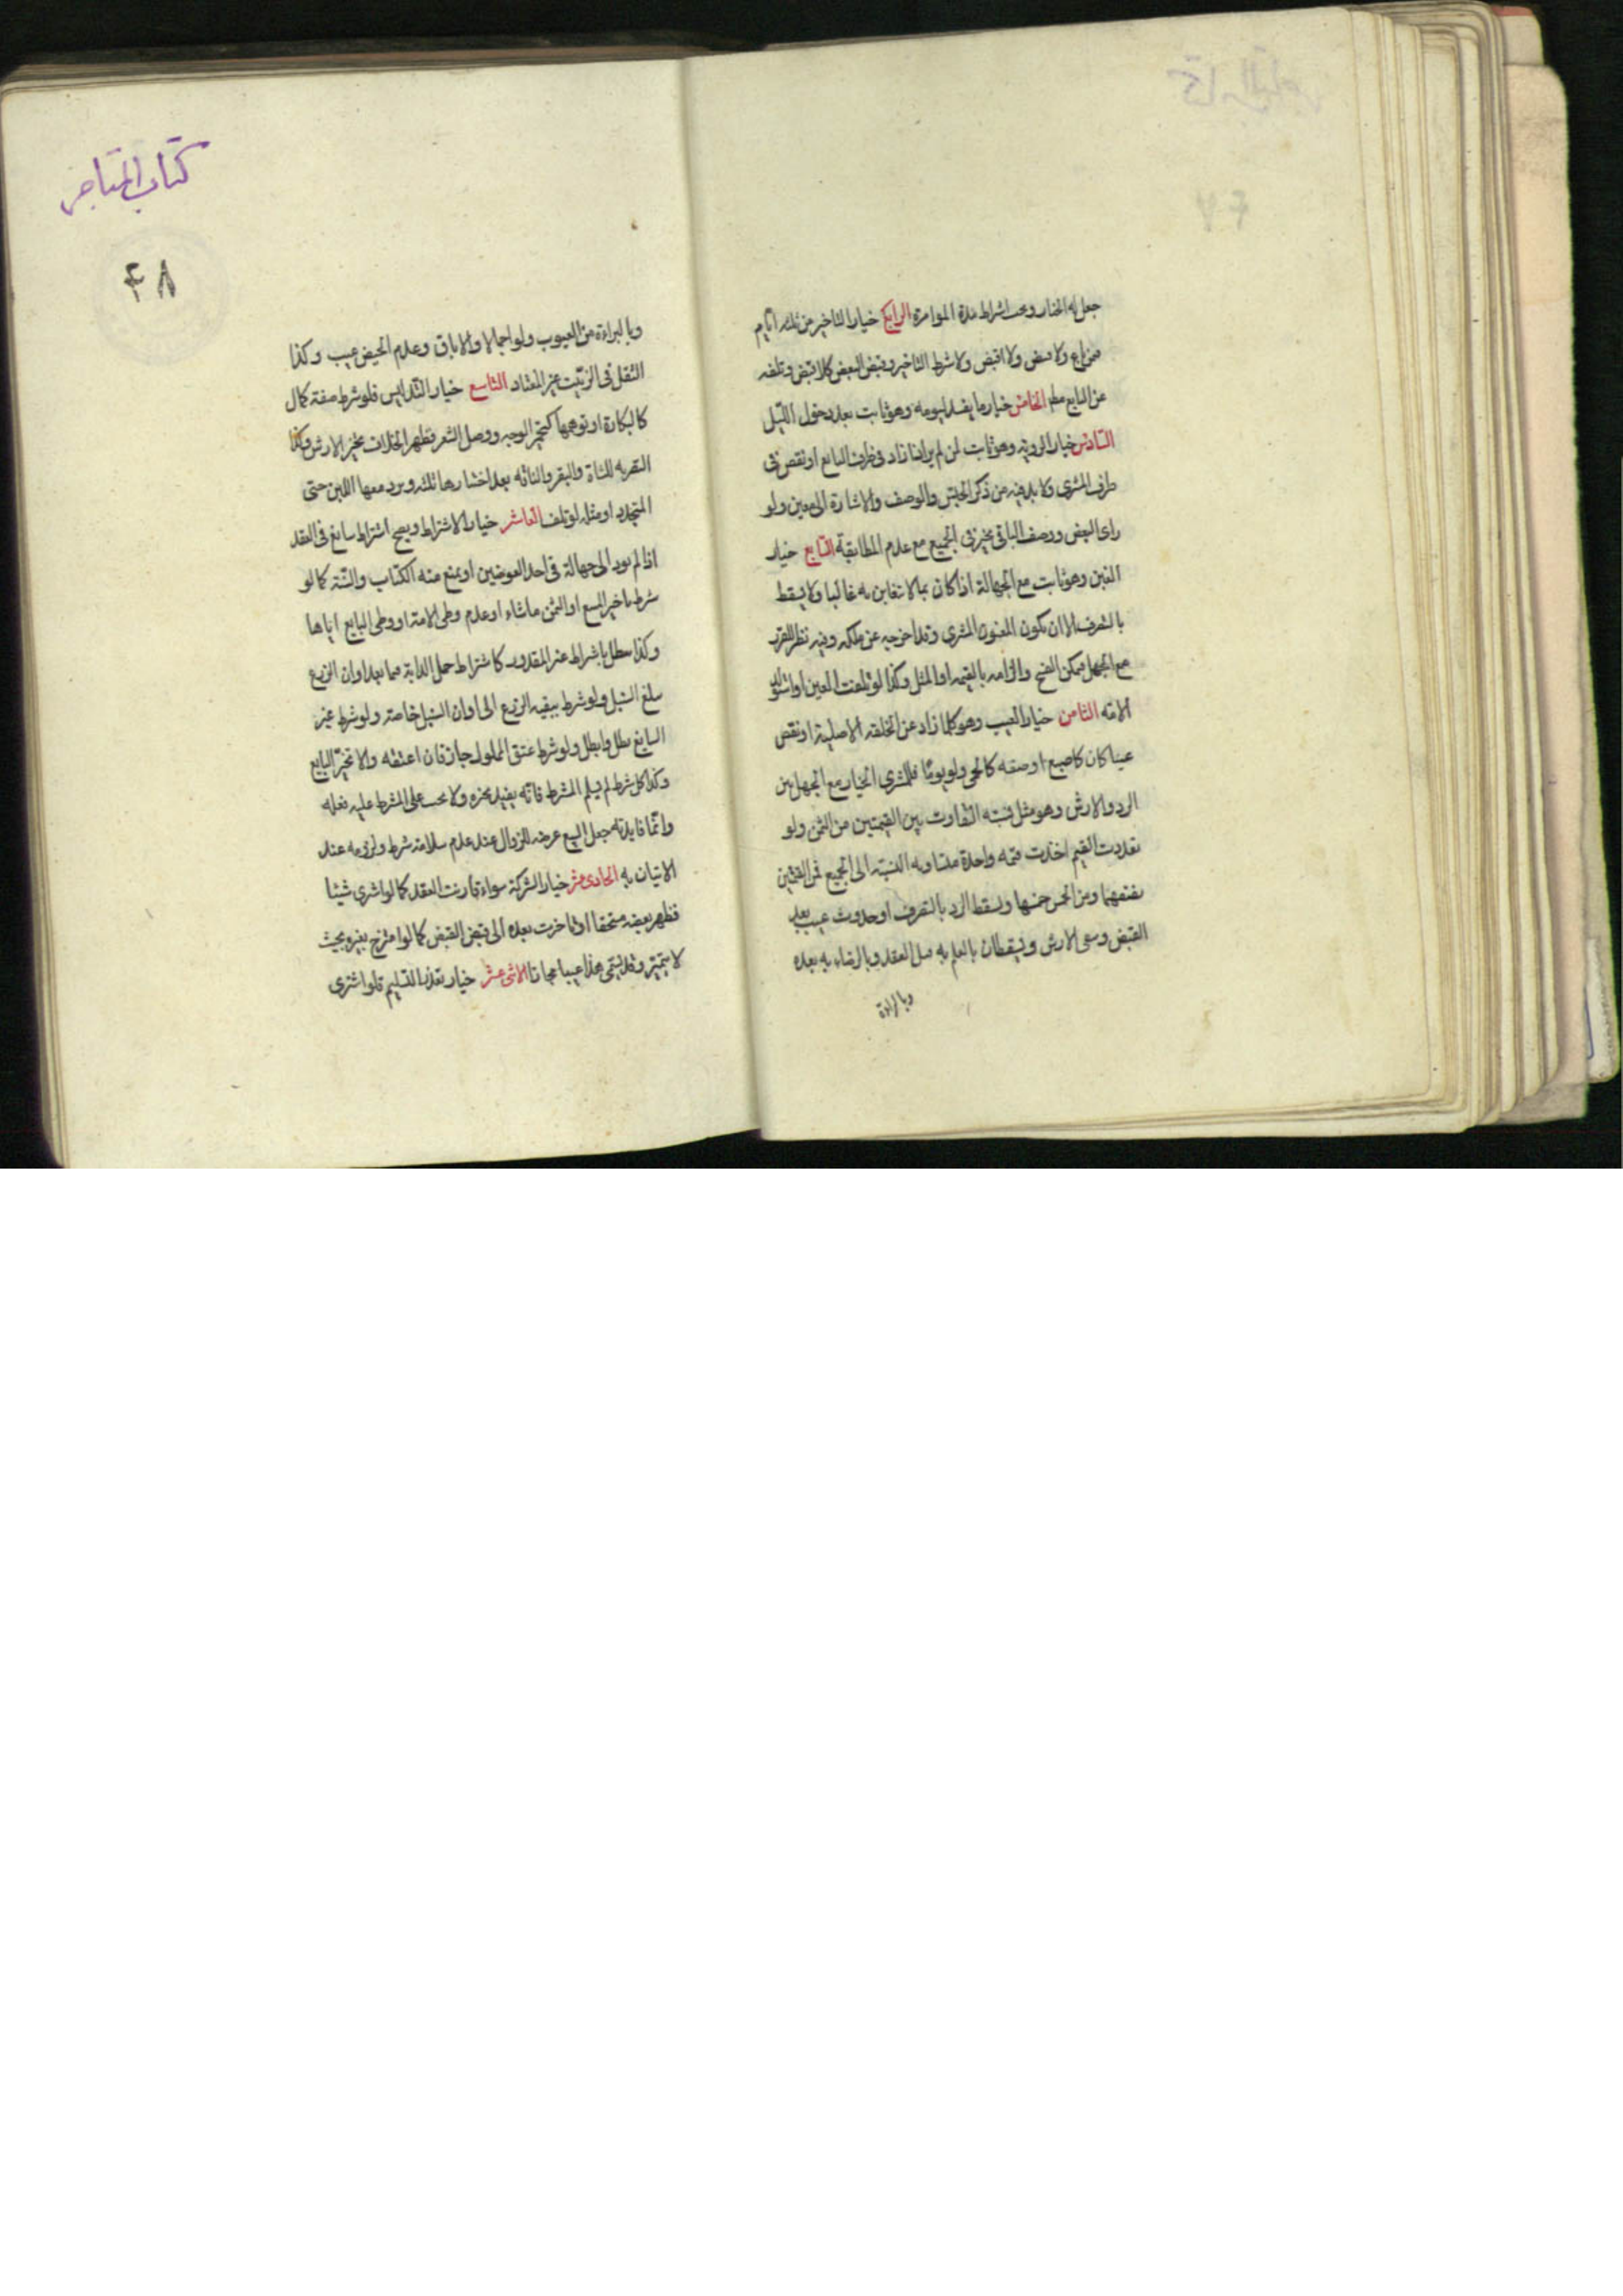 جعل له الخيار ويجب اشتراط مدة المؤامرة الرابع خيار التاخير عن ثلثه ايام
فمن باع ولا قبض ولا اقبض ولا شرط التاخير وقبض البعض كلا قبض وتلفه
عن البايع مطلقا الخامس خيار ما يفسد ليومه وهو ثابت بعد دخول الليل
السادس خيار الرويه وهو ثابت لمن لم ير اذا زاد في طرف البايع او نقص في
طرف المشترى ولا بد فيه من ذكر الجنس والوصف والاشارة الى معين ولو
راى البعض ووصف الباقي تخير في الجميع مع عدم المطابقة السابع خيار
الغبن وهو ثابت مع الجهالة اذا كان بما لا يتغابن به غالبا ولا يسقط
بالتصرف الا ان يكون المغبون المشترى وقد اخرجه عن ملكه وفيه نظر للضرر
مع الجهل فيمكن الفسخ والزامه بالقيمه او المثل وكذا لو تلفت العين او استولد
الامة الثامن خيار العيب وهو كلما زاد عن الخلقه الاصلية او نقص
عينا كان كاصبع او صفه كالحمى ولو يوما فللمشترى الخيار مع الجهل بين
الرد والارش وهو مثل نسبة التفاوت بين القيمتين من الثمن ولو
تعددت القيم اخذت قيمه واحدة متساويه النسبة الى الجميع فمن القيمتين
نصفهما ومن الخمس خمسها ويسقط الرد بالتصرف او حدوث عيب بعد
القبض ويبقى الارش ويسقطان بالعلم به قبل العقد وبالرضاء به بعده
وبالبراءة
كتاب المتاجر
۴۸
وبالبراءة من العيوب ولو اجمالا والاباق وعدم الحيض عيب وكذا
الثفل في الزيت غير المعتاد التاسع خيار التدليس فلو شرط صفة كمال
كالبكارة او توهمها كتحمير الوجه ووصل الشعر فظهر الخلاف تخير ولا ارش وكذا
التصريه للشاة والبقر والناقه بعد اختبارها ثلثه ويرد معها اللبن حتى
المتجدد او مثله لو تلف العاشر خيار الاشتراط ويصح اشتراط سايغ في العقد
اذا لم يود الى جهالة في احد العوضين او يمنع منه الكتاب والسنة كما لو
شرط تاخير المبيع او الثمن ما شاء او عدم وطى الامة او وطى البايع اياها
وكذا يبطل باشتراط غير المقدور كاشتراط حمل الدابة فيما بعد او ان الزرع
يبلغ السنبل ولو شرط تبقيه الزرع الى اوان السنبل خاصة ولو شرط غير
السايغ بطل وابطل ولو شرط عتق المملوك جاز فان اعتقه والا تخير البايع
وكذا كل شرط لم يسلم لمشترطه فانه يفيد تخيره ولا يجب على المشترط عليه فعله
وانما فايدته جعل البيع عرضه للزوال عند عدم سلامة شرط ولزومه عند
الاتيان به الحادى عشر خيار الشركة سواء قارنت العقد كما لو اشترى شيئا
فظهر بعضه مستحقا او تاخرت بعده الى قبض القبض كما لو امتزج بغيره بحيث
لا يتميز وقد يسمى هذا عيبا مجازا الاثنى عشر خيار تعذر التسليم فلو اشترى